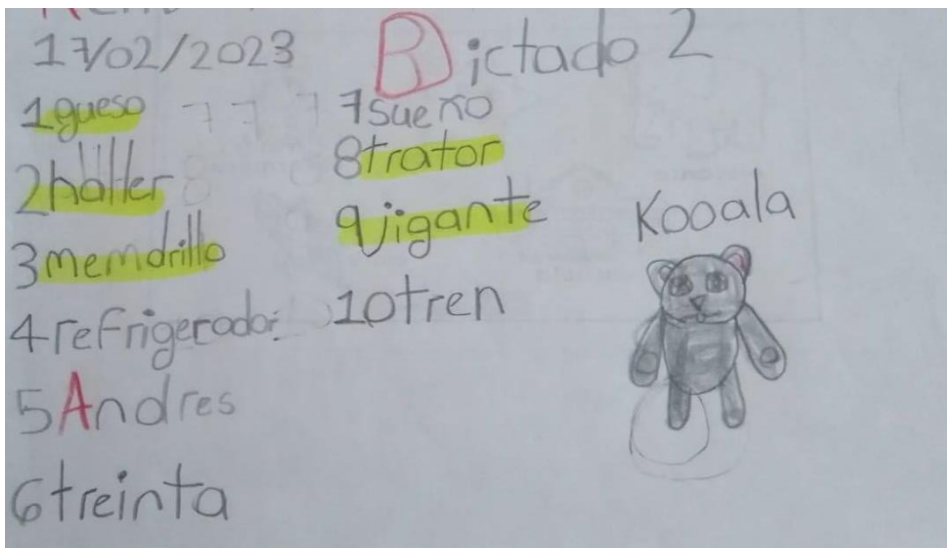 17/02/2023
Dictado 2
1 gueso
2 hãller
3 memdrillo
4 refrigerador
5 Andres
6 treinta
7 sueño
8 trator
9 jigante
10 tren
Kooala